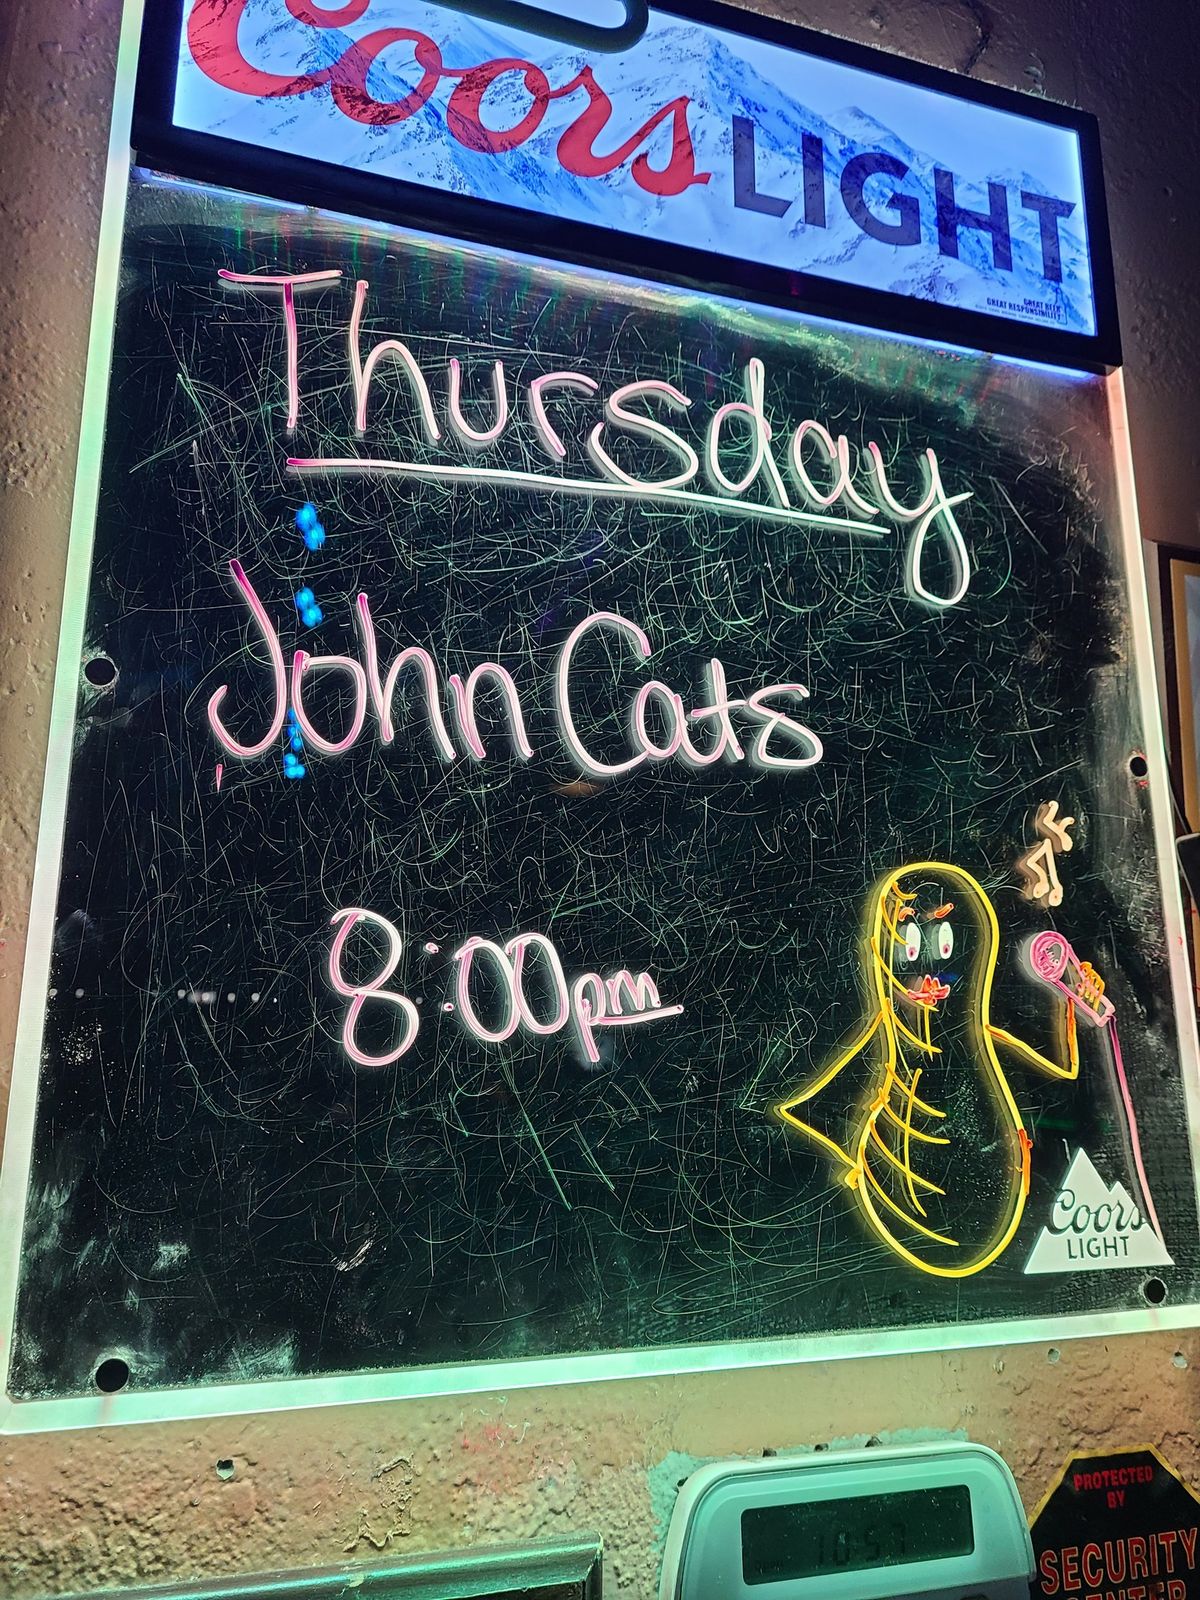 Coors LIGHT
GREAT BEER
GREAT RESPONSIBILITY
Thursday
John Cats
8:00pm
Coors
LIGHT
10:57
PROTECTED
BY
SECURITY
CENTER